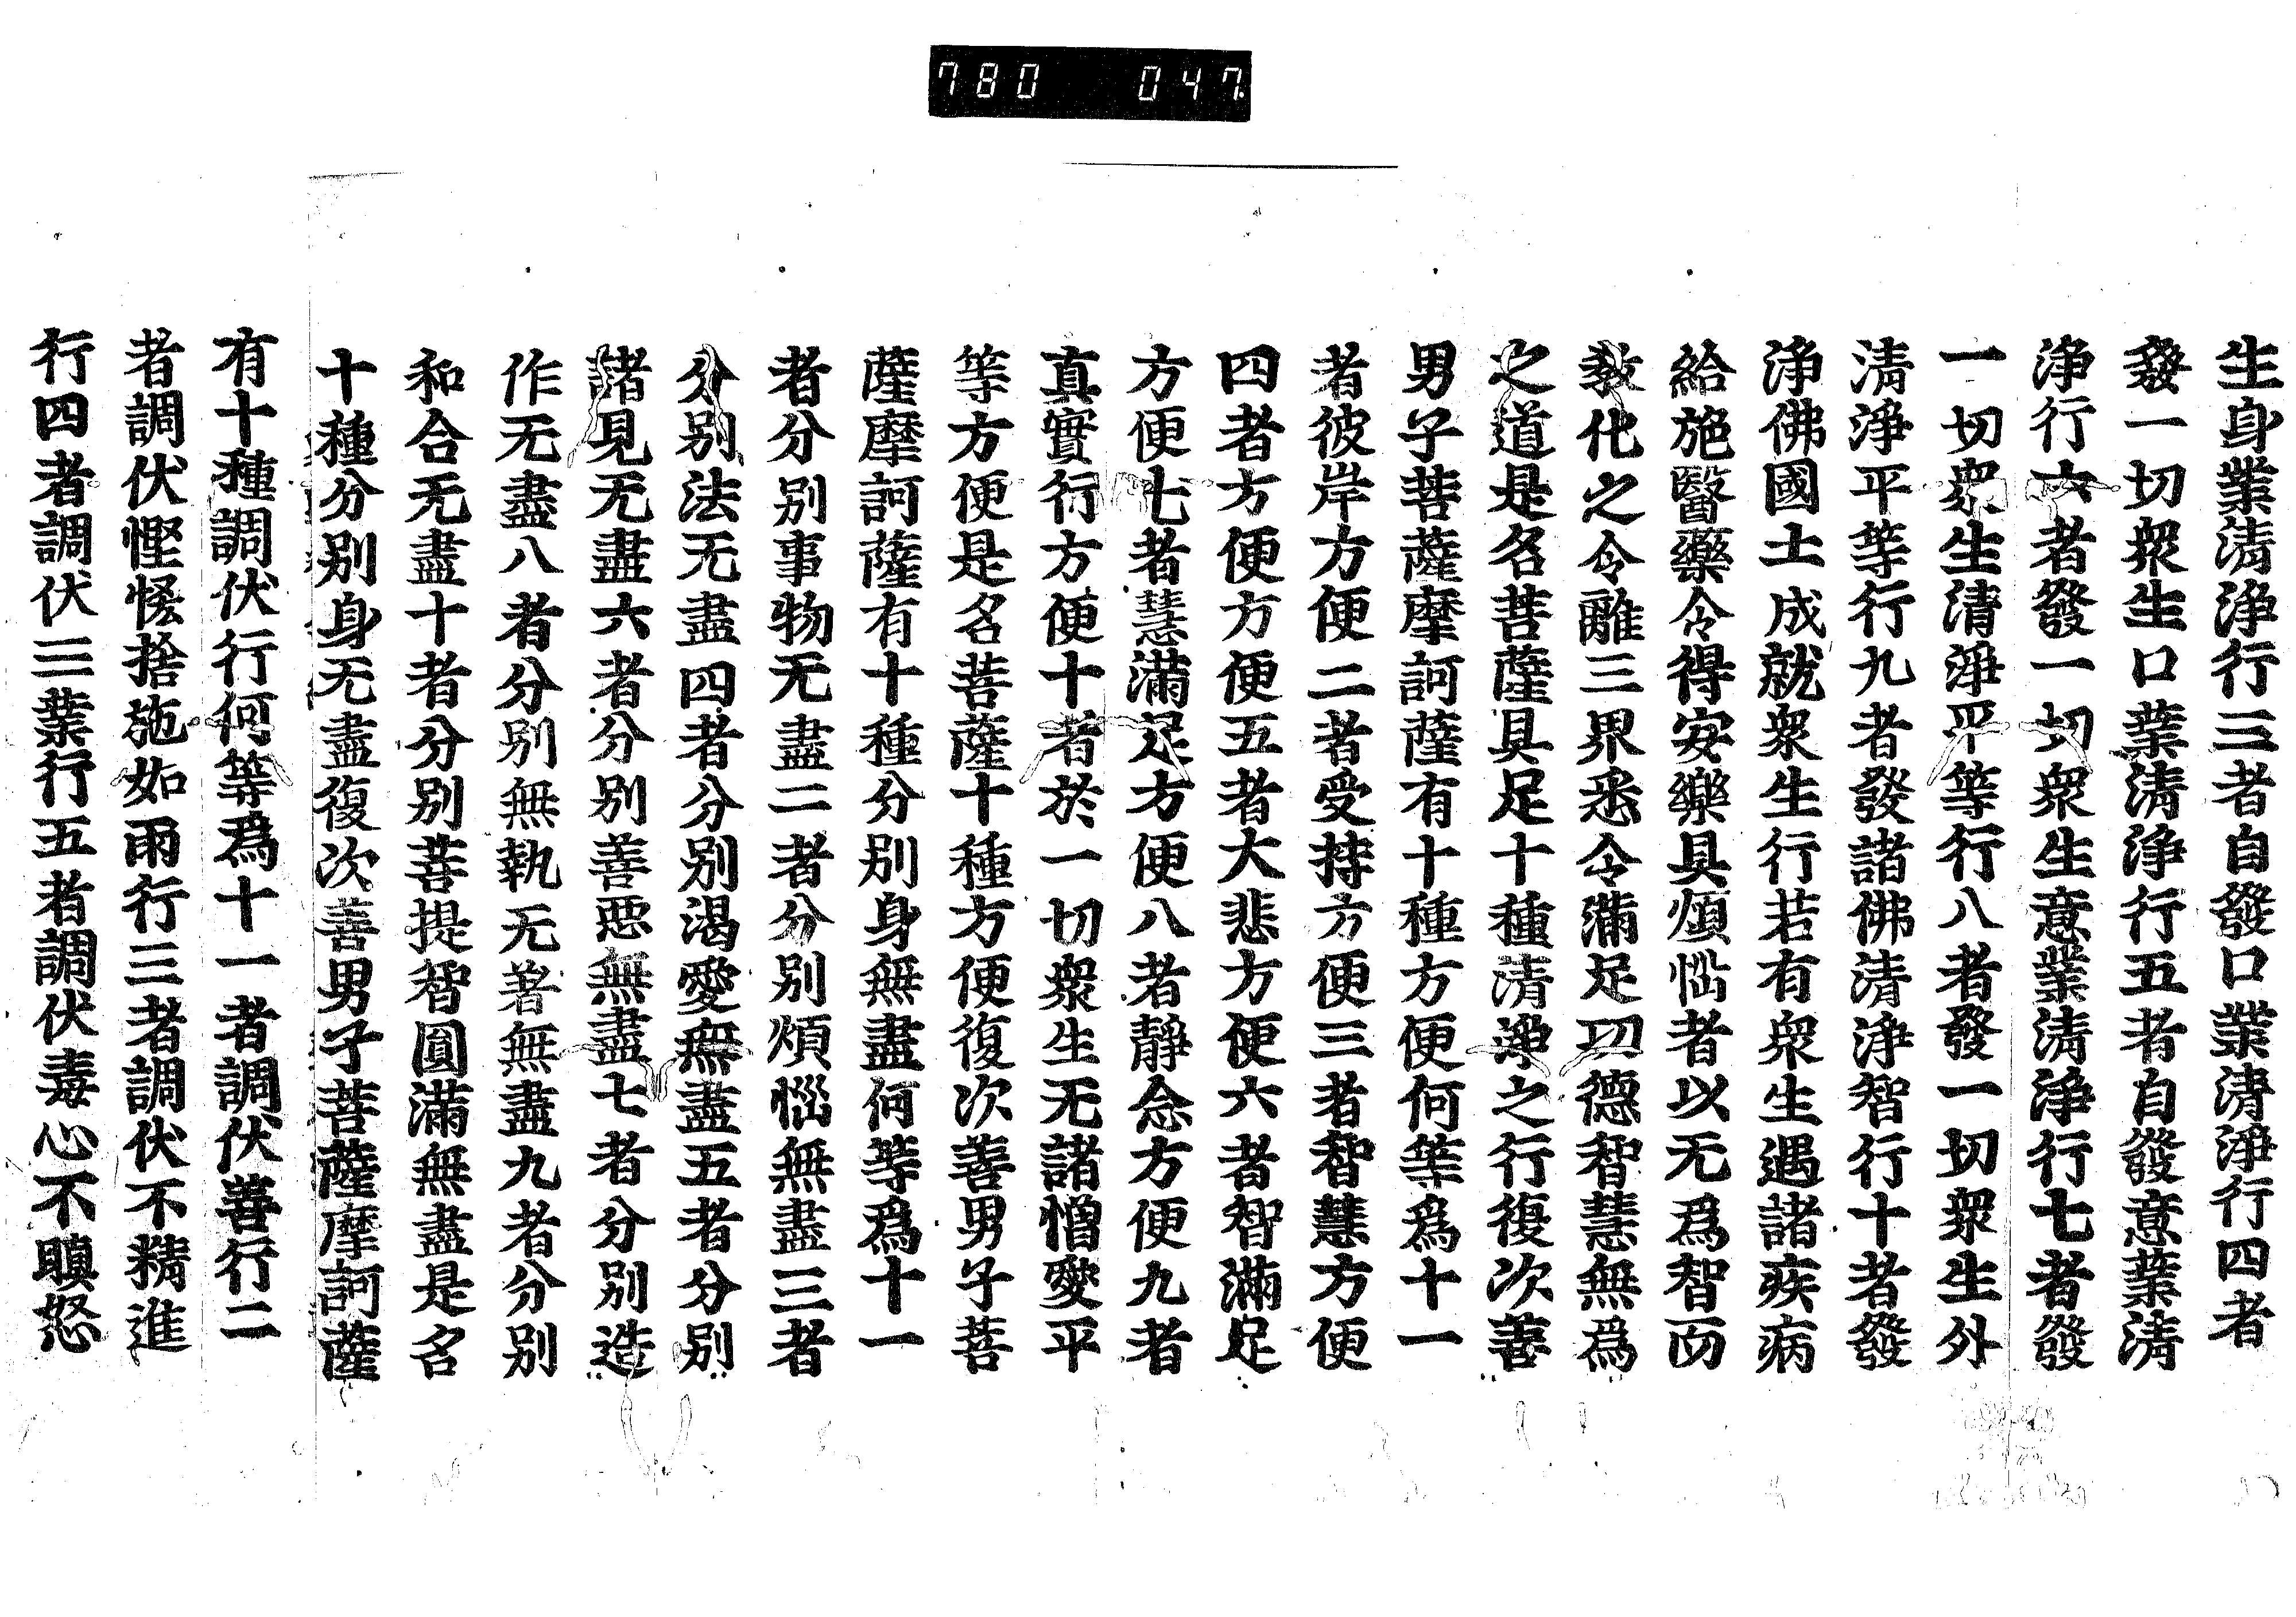 780 047
生身業清淨行三者自發口業清淨行四者
發一切衆生口業清淨行五者自發意業清
淨行六者發一切衆生意業清淨行七者發
一切衆生清淨平等行八者發一切衆生外
清淨平等行九者發諸佛清淨智行十者發
淨佛國土成就衆生行若有衆生遇諸疾病
給施醫藥令得安樂具煩惱者以无爲智而
教化之令離三界悉令滿足功德智慧無爲
之道是名菩薩具足十種清淨之行復次善
男子菩薩摩訶薩有十種方便何等爲十一
者彼岸方便二者受持方便三者智慧方便
四者方便方便五者大悲方便六者智滿足
方便七者慧滿足方便八者靜念方便九者
真實行方便十者於一切衆生无諸憎愛平
等方便是名菩薩十種方便復次善男子菩
薩摩訶薩有十種分别身無盡何等爲十一
者分别事物无盡二者分别煩惱無盡三者
分别法无盡四者分别渴愛無盡五者分别
諸見无盡六者分别善惡無盡七者分别造
作无盡八者分别無執无著無盡九者分别
和合无盡十者分别菩提智圓滿無盡是名
十種分别身无盡復次善男子菩薩摩訶薩
有十種調伏行何等爲十一者調伏善行二
者調伏慳悋捨施如雨行三者調伏不精進
行四者調伏三業行五者調伏毒心不瞋怒